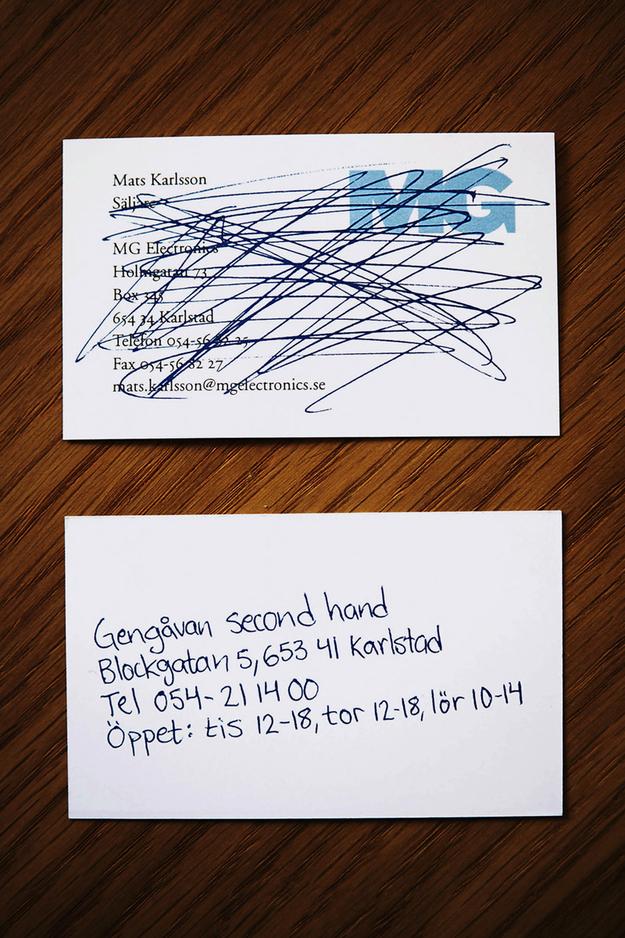 Mats Karlsson
MG
Säljare
MG Electronics
Box 345
654 34 Karlstad
Telefon 054-56 82 25
Fax 054-56 82 27
mats.karlsson@mgelectronics.se
Gengåvan second hand
Blockgatan 5, 653 41 Karlstad
Tel 054-21 14 00
Öppet: tis 12-18, tor 12-18, lör 10-14